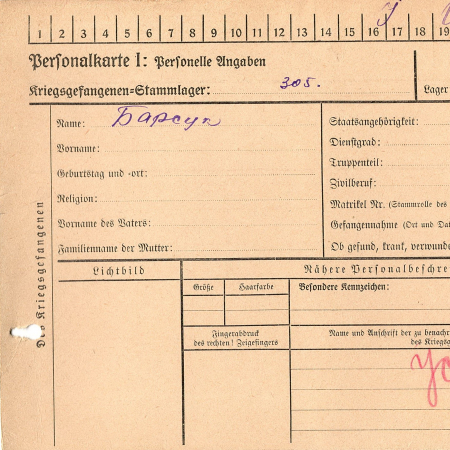 1 2 3 4 5 6 7 8 9 10 11 12 13 14 15 16 17 18 19
Personalkarte I: Personelle Angaben
Kriegsgefangenen-Stammlager: 305.
Lager
Des Kriegsgefangenen
Name: Барсук
Vorname:
Geburtstag und -ort:
Religion:
Vorname des Vaters:
Familienname der Mutter:
Staatsangehörigkeit:
Dienstgrad:
Truppenteil:
Zivilberuf:
Matrikel Nr. (Stammrolle des
Gefangennahme (Ort und Da
Ob gesund, krank, verwund
Lichtbild
Nähere Personalbeschre
Größe
Haarfarbe
Besondere Kennzeichen:
Fingerabdruck
des rechten! Zeigefingers
Name und Anschrift der zu benach
des Kriegs